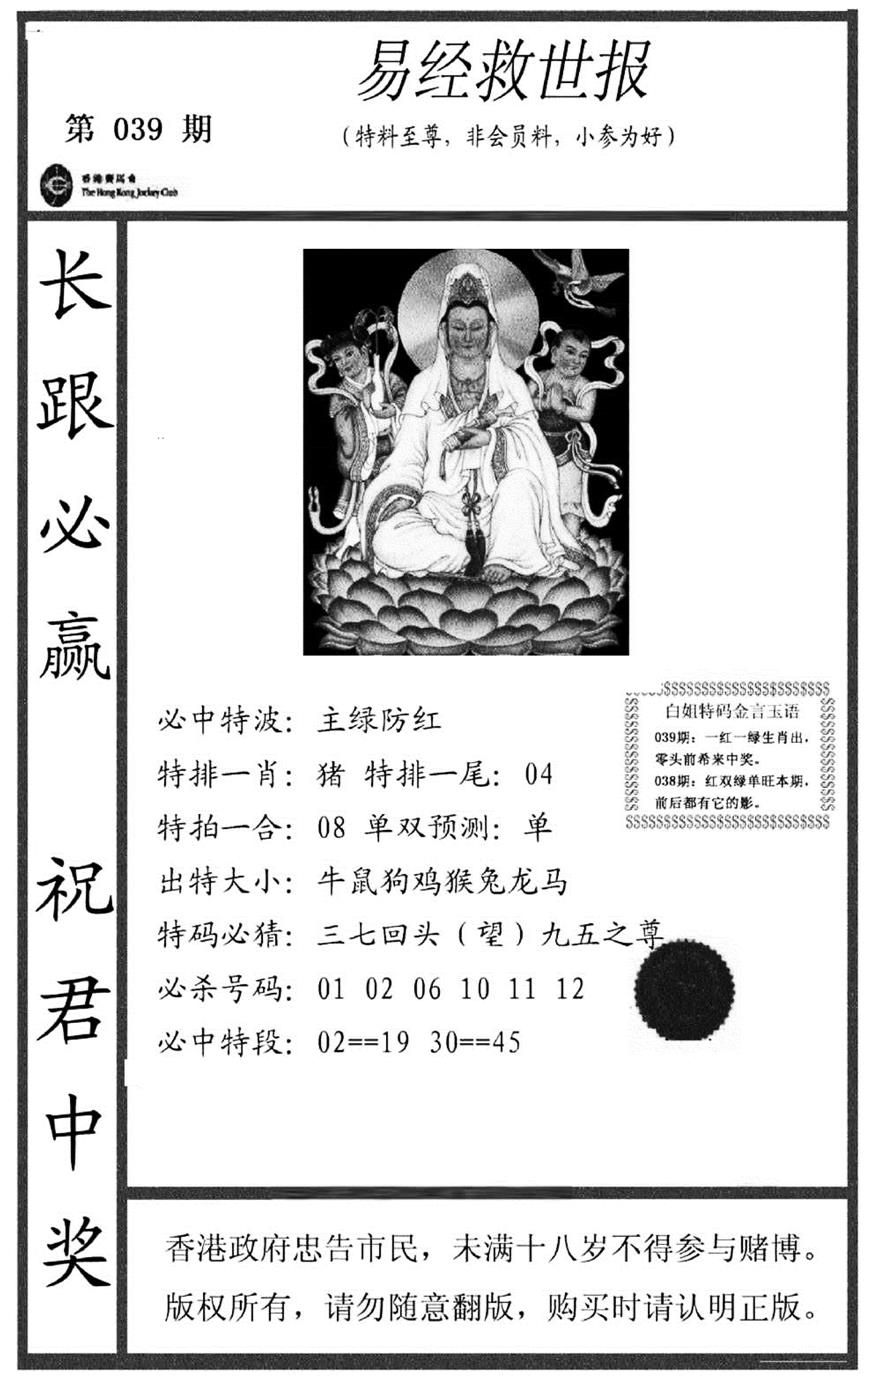 易经救世报
第 039 期
（特料至尊，非会员料，小参为好）
香港賽馬會
The Hong Kong Jockey Club
长跟必赢 祝君中奖
必中特波：主绿防红
特排一肖：猪 特排一尾：04
特拍一合：08 单双预测：单
出特大小：牛鼠狗鸡猴兔龙马
特码必猜：三七回头（望）九五之尊
必杀号码：01 02 06 10 11 12
必中特段：02==19 30==45
$$$$$$$$$$$$$$$$$$$$$$$
白姐特码金言玉语
039期：一红一绿生肖出，
零头前希来中奖。
038期：红双绿单旺本期，
前后都有它的影。
$$$$$$$$$$$$$$$$$$$$$$$$$$$
香港政府忠告市民，未满十八岁不得参与赌博。
版权所有，请勿随意翻版，购买时请认明正版。